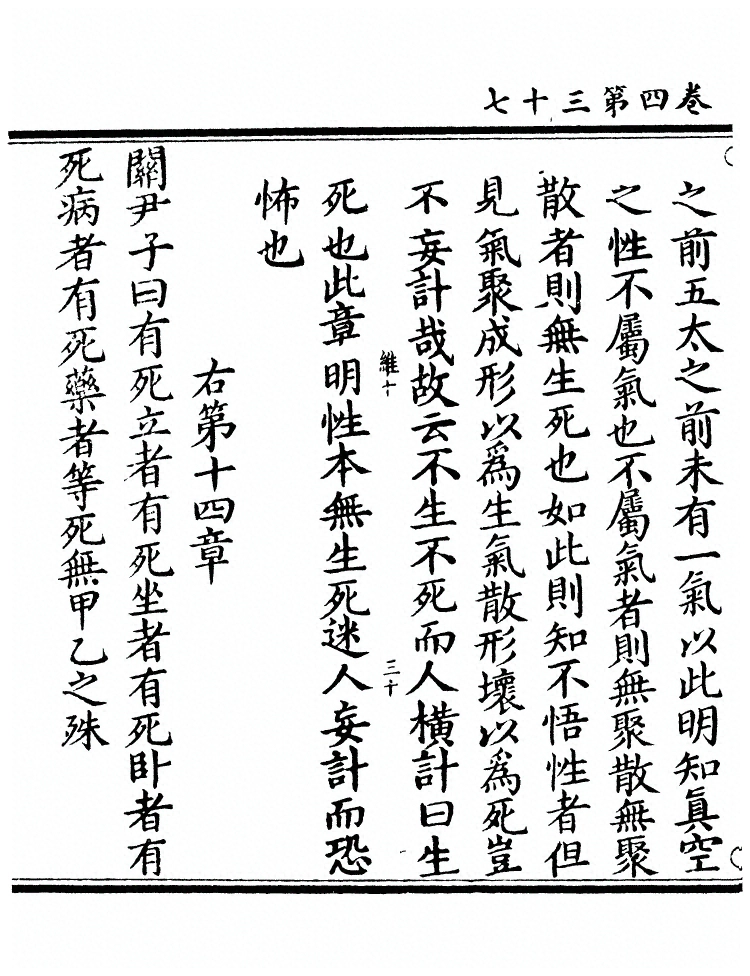 卷四第三十七
之前五太之前未有一氣以此明知眞空
之性不屬氣也不屬氣者則無聚散無聚
散者則無生死也如此則知不悟性者但
見氣聚成形以爲生氣散形壞以爲死豈
不妄計哉故云不生不死而人橫計曰生
維十
三十
死也此章明性本無生死迷人妄計而恐
怖也
右第十四章
關尹子曰有死立者有死坐者有死臥者有
死病者有死藥者等死無甲乙之殊